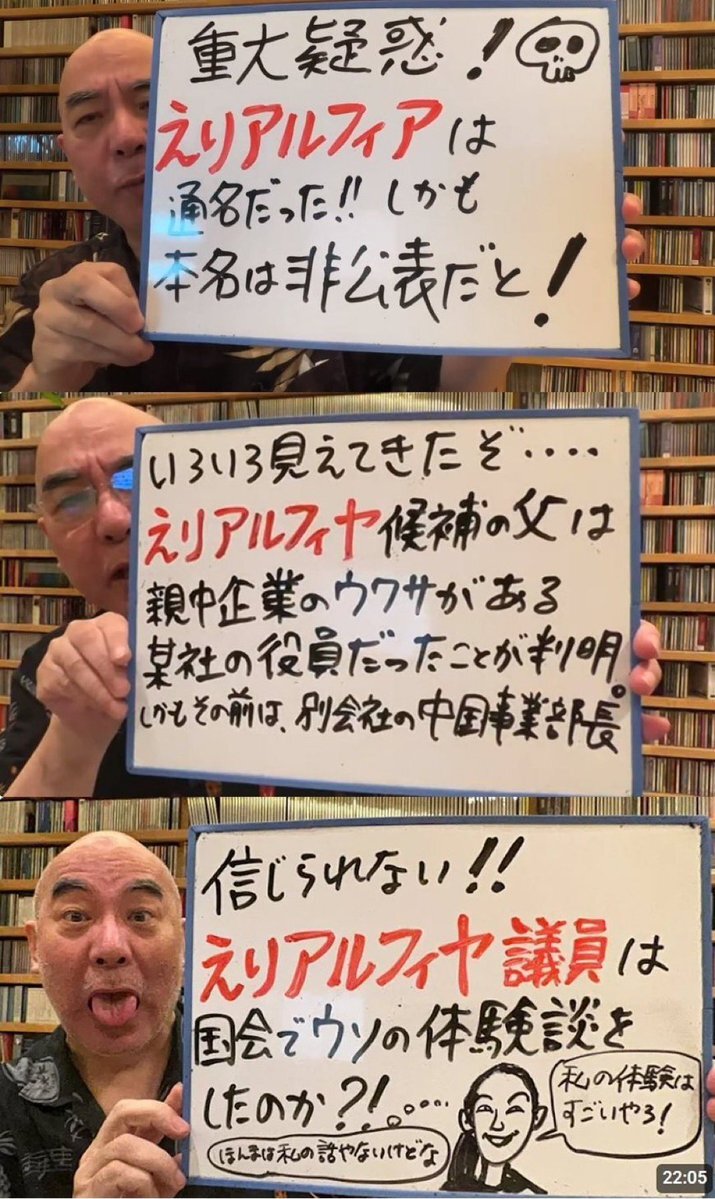 重大疑惑!
えりアルフィアは
通名だった!!しかも
本名は非公表だと!
いろいろ見えてきたぞ....
えりアルフィヤ候補の父は
親中企業のウワサがある
某社の役員だったことが判明。
しかもその前は、別会社の中国事業部長
信じられない!!
えりアルフィヤ議員は
国会でウソの体験談を
したのか?!
私の体験は
すごいやろ!
ほんまは私の話やないけどな
22:05